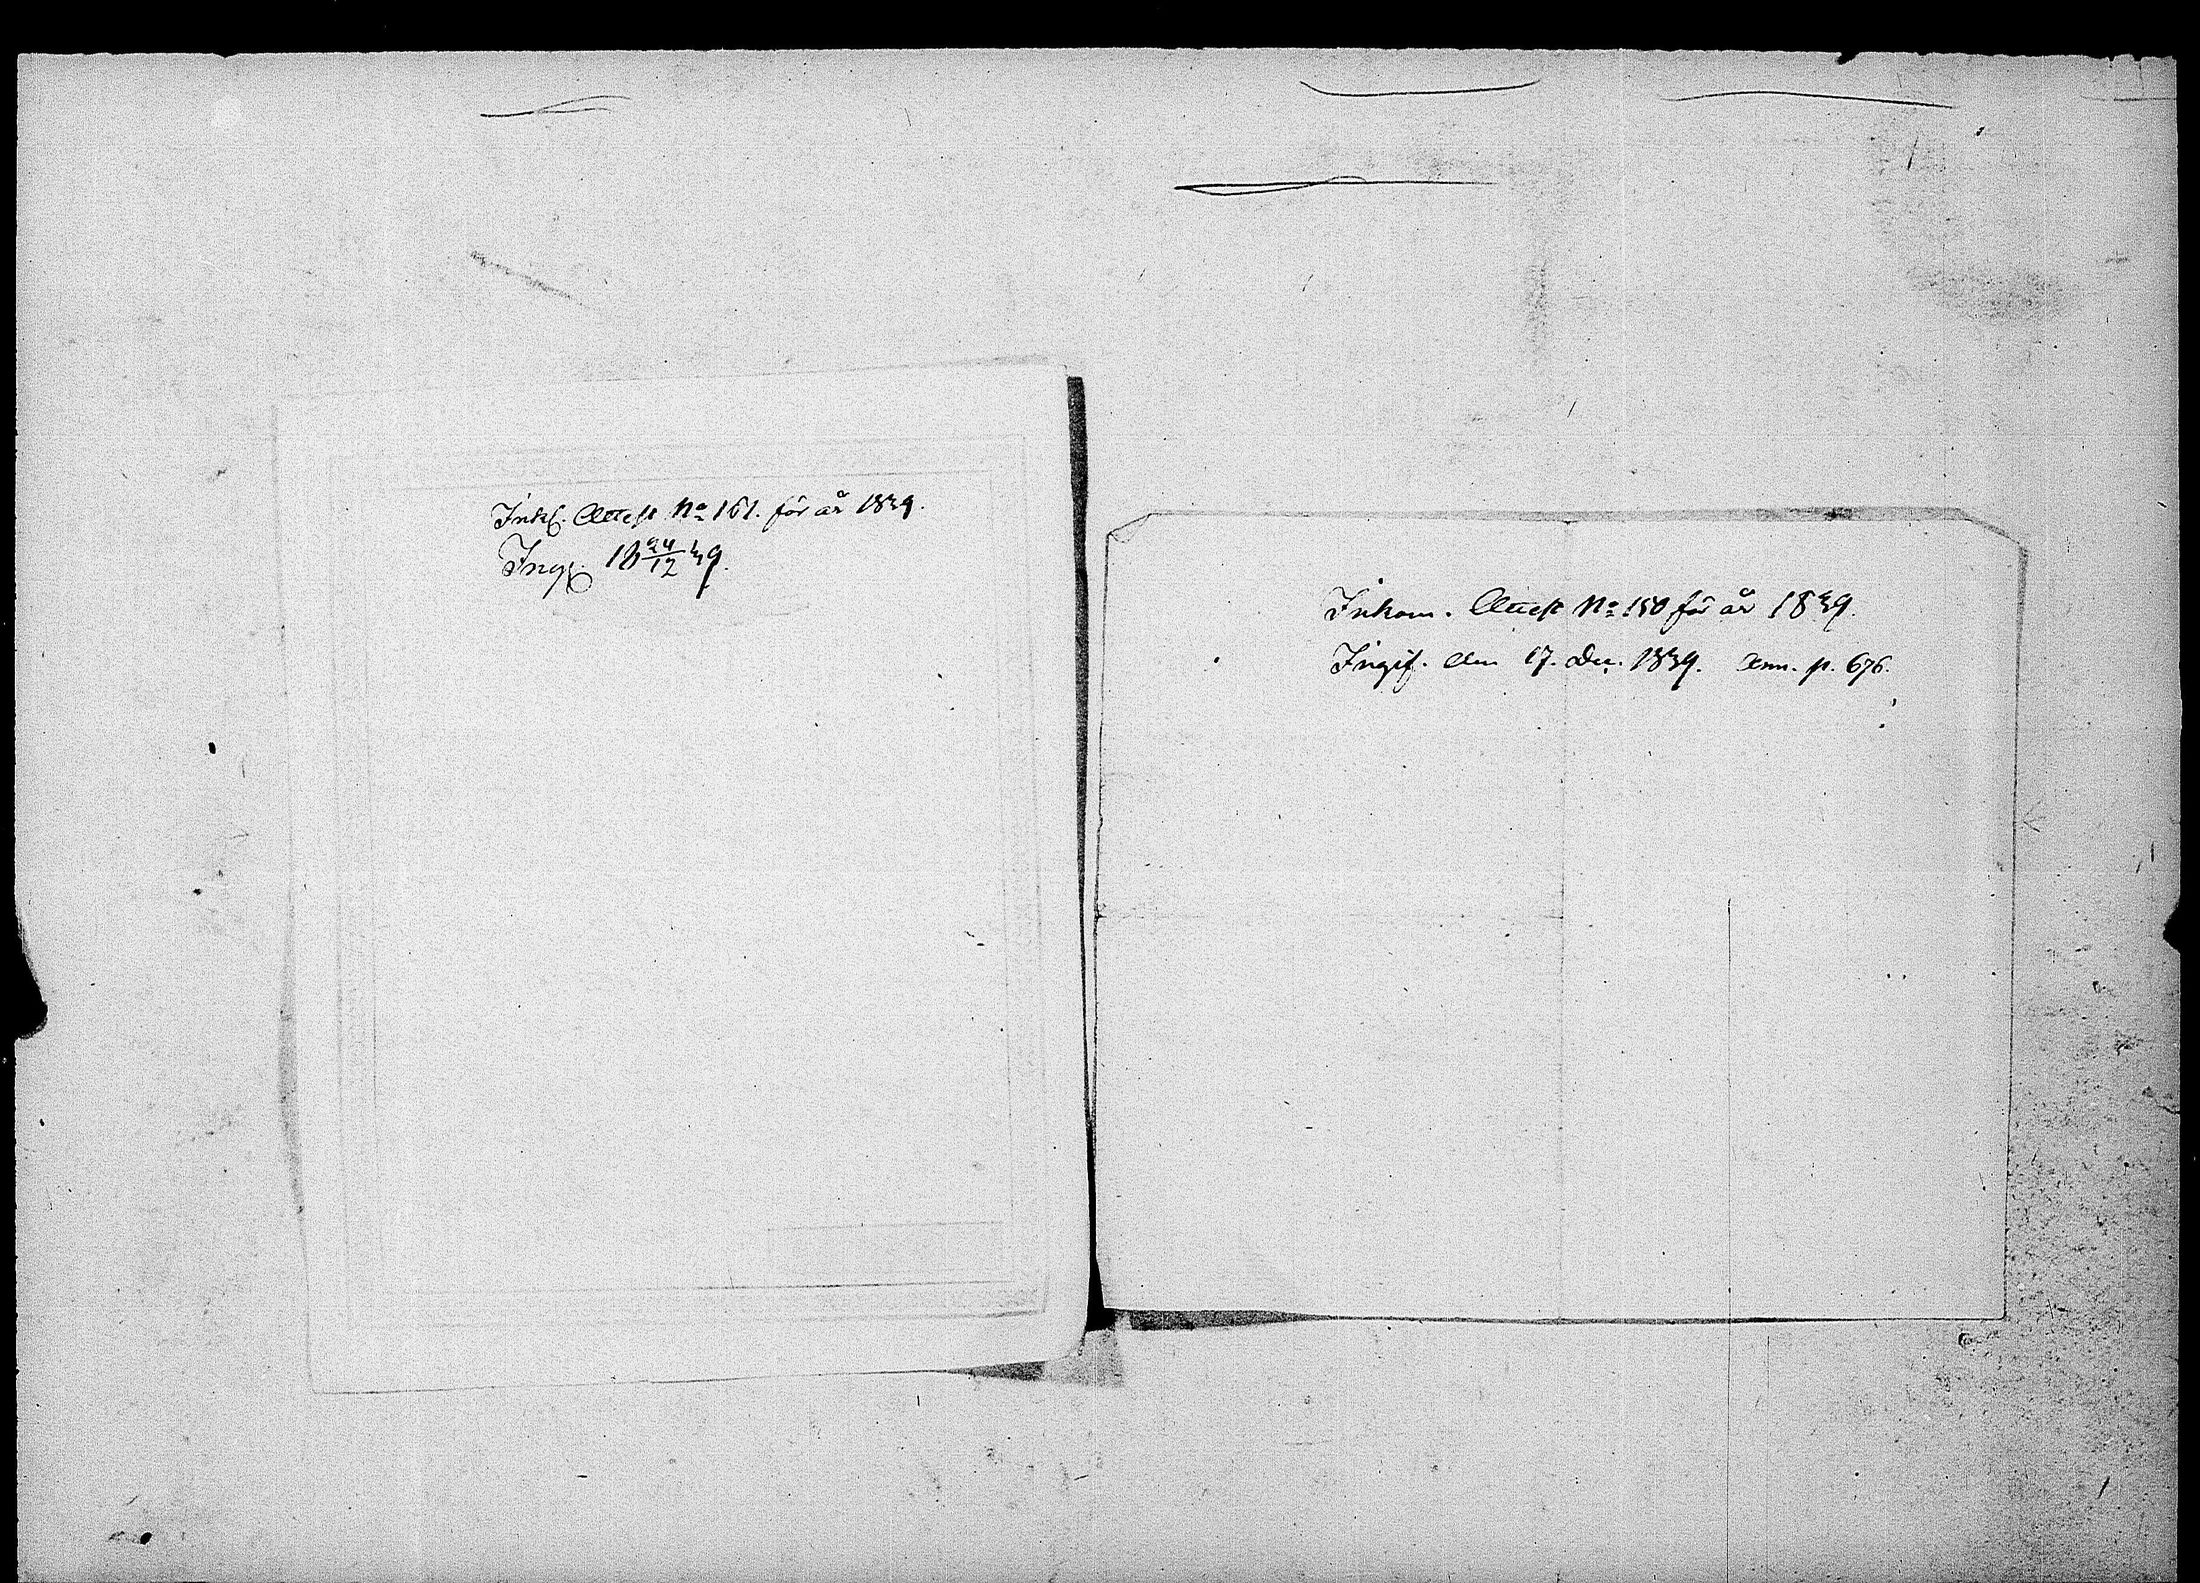 Inkl. Attest No 161. för år 1839.
Ingif. 18 24/12 39.
Inkom. Attest No 150 för år 1839.
Ingif. den 17. Dec. 1839. Ann. p. 676.